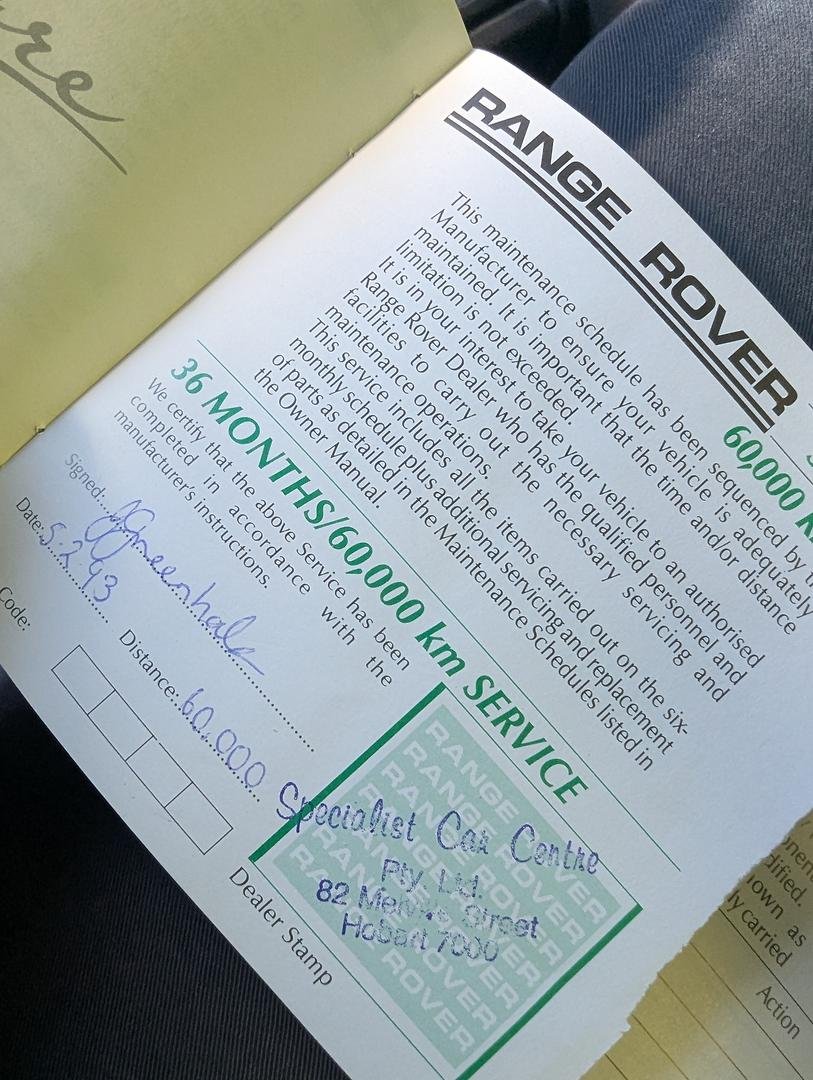 re
RANGE ROVER
60,000 k
This maintenance schedule has been sequenced by t
Manufacturer to ensure your vehicle is adequately
maintained. It is important that the time and/or distance
limitation is not exceeded.
It is in your interest to take your vehicle to an authorised
Range Rover Dealer who has the qualified personnel and
facilities to carry out the necessary servicing and
maintenance operations.
This service includes all the items carried out on the six-
monthly schedule plus additional servicing and replacement
of parts as detailed in the Maintenance Schedules listed in
the Owner Manual.
36 MONTHS/60,000 km SERVICE
We certify that the above Service has been
completed in accordance with the
manufacturer's instructions.
Signed:
Date: 5.2.93
Distance: 60,000
Code:
Dealer Stamp
RANGE ROVER
RANGE ROVER
RANGE ROVER
RANGE ROVER
RANGE ROVER
RANGE ROVER
Specialist Car Centre
Pty. Ltd.
82 Street
Hobart 7000
dified.
lown as
ly carried
Action